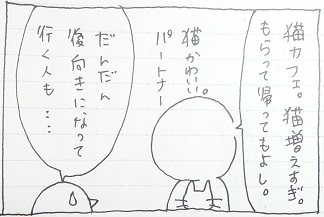 猫カフェ。猫増えすぎ。
もらって帰ってもよし。
猫かわいい。
パートナー
だんだん
後向きになって
行く人も…